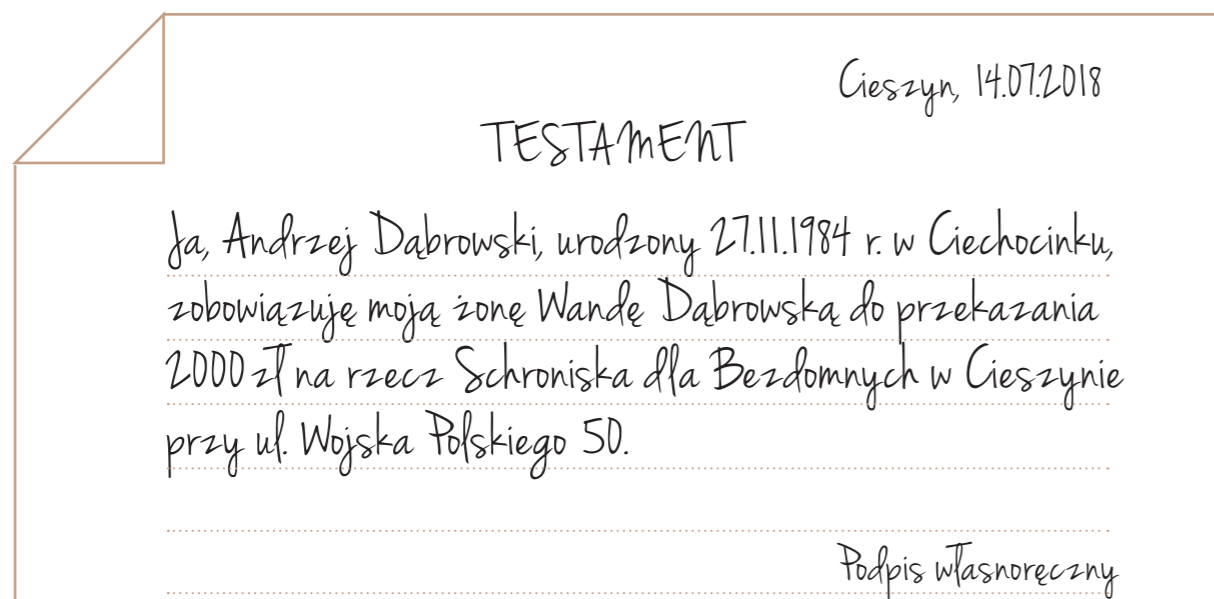 Cieszyn, 14.07.2018
TESTAMENT
Ja, Andrzej Dąbrowski, urodzony 27.11.1984 r. w Ciechocinku,
zobowiązuję moją żonę Wandę Dąbrowską do przekazania
2000 zł na rzecz Schroniska dla Bezdomnych w Cieszynie
przy ul. Wojska Polskiego 50.
Podpis własnoręczny